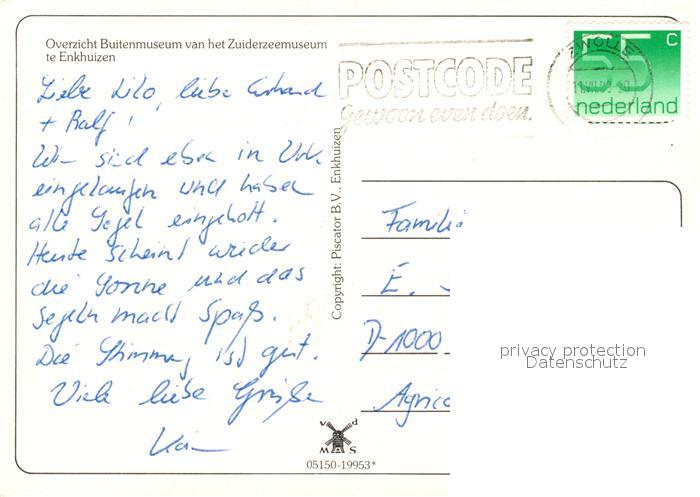 Overzicht Buitenmuseum van het Zuiderzeemuseum
te Enkhuizen
Liebe Lilo, liebe Gerhard
+ Ralf!
Wir sind eben in Urk
eingelaufen und haben
alle Segel eingeholt.
Heute scheint wieder
die Sonne und das
Segeln macht Spaß.
Die Stimmung ist gut.
Viele liebe Grüße
Copyright: Piscator B.V., Enkhuizen
v d
M S
05150-19953*
POSTCODE
Gewoon even doen.
ZWOLLE
55 c
nederland
Familie
E.
D-1000
Agric
privacy protection
Datenschutz